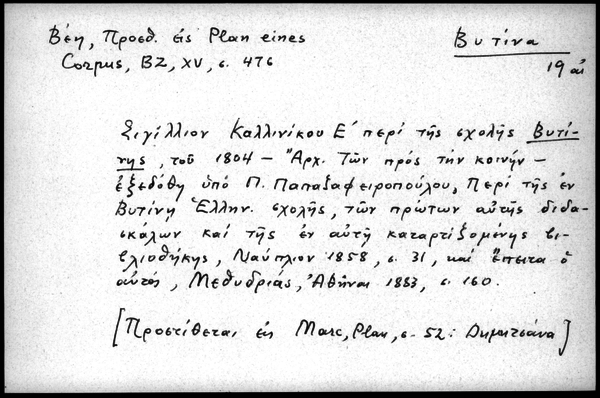 Βέη, Προσθ. εἰς Plan eines
Corpus, BZ, XV, σ. 476
Βυτίνα
19 αἰ
Σιγίλλιον Καλλινίκου Ε´ περί τῆς σχολῆς Βυτί-
νης, τοῦ 1804 – "Ἀρχ. Τῶν πρός τήν κοινήν –
ἐξεδόθη ὑπό Π. Παπαζαφειροπούλου, Περί τῆς ἐν
Βυτίνῃ Ἑλλην. σχολῆς, τῶν πρώτων αὐτῆς διδα-
σκάλων καί τῆς ἐν αὐτῇ καταρτιζομένης βι-
βλιοθήκης, Ναύπλιον 1858, σ. 31, καί ἔπειτα ὁ
αὐτός, Μεθυδριάς, Ἀθῆναι 1883, σ. 160.
[Προστίθεται εἰς Marc, Plan, σ. 52: Δημητσάνα]